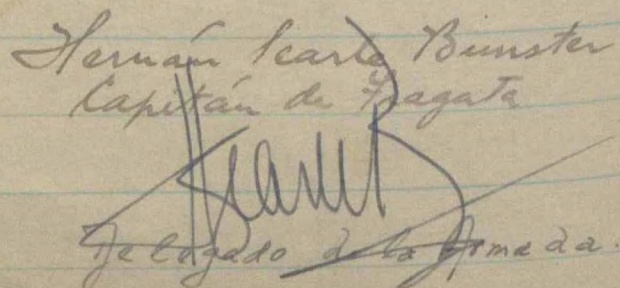 Hernán Searle Bunster
Capitán de Fragata
Delegado de la Armada.